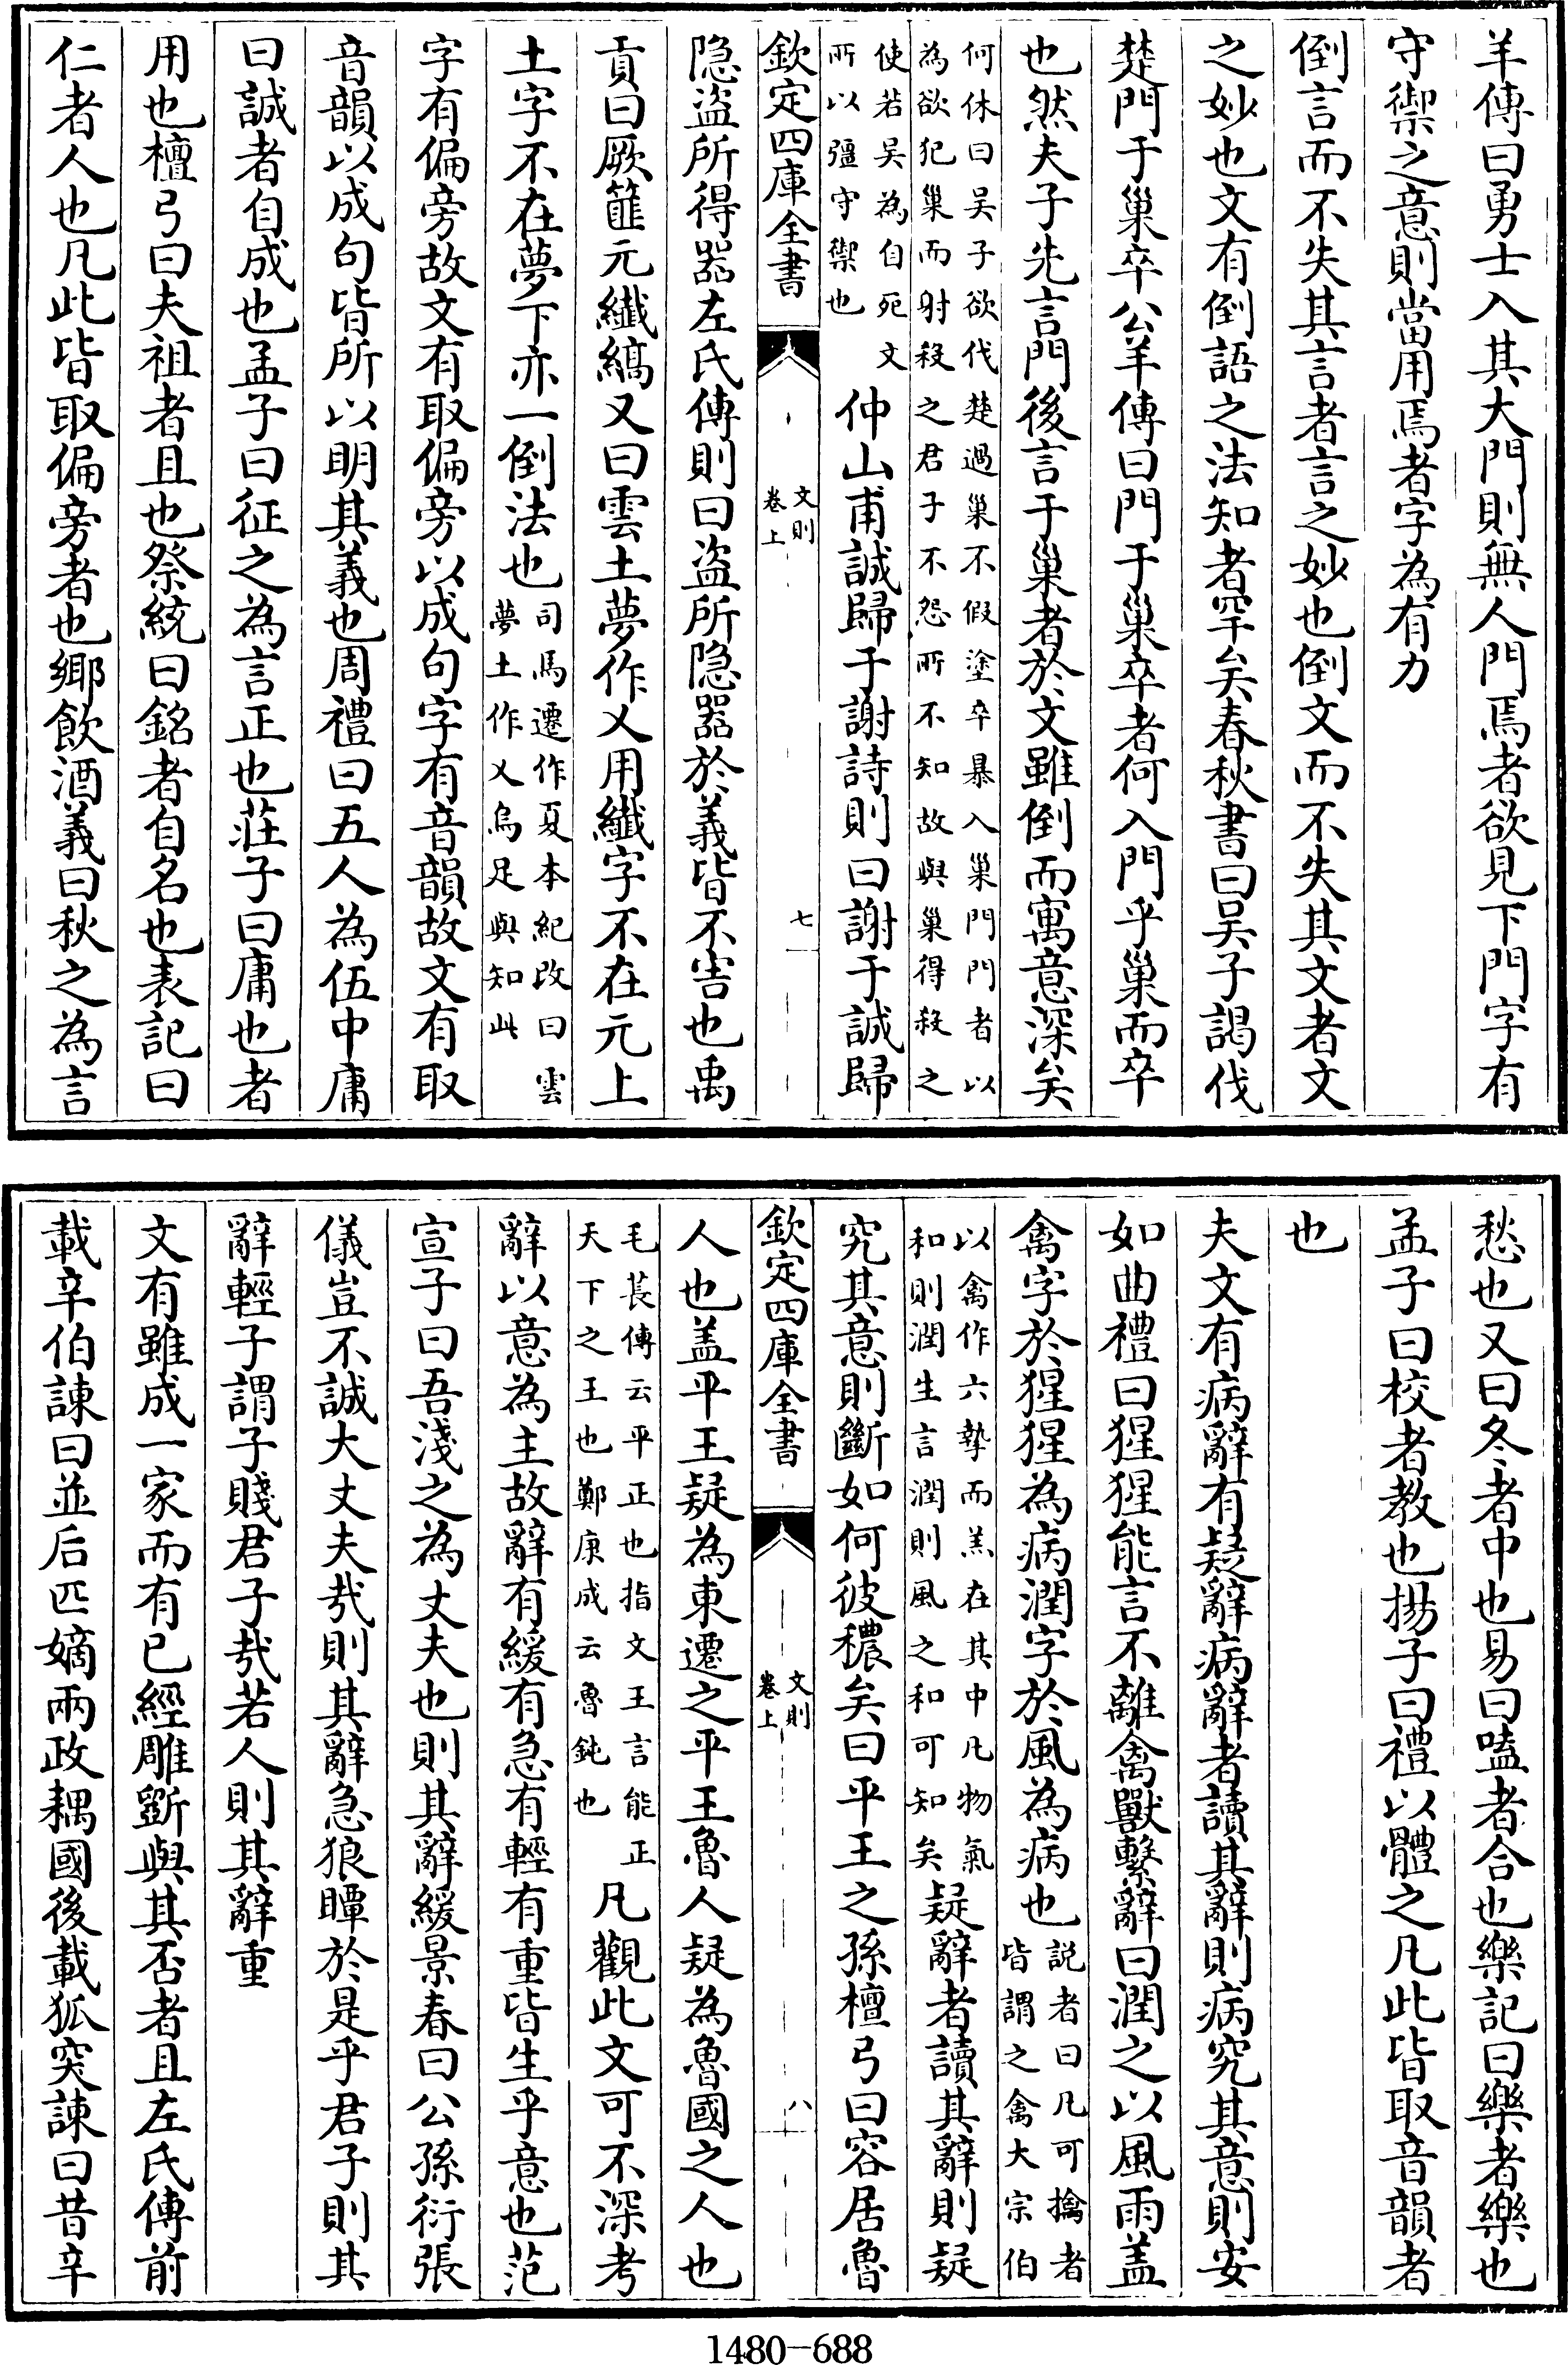 羊傳曰勇士入其大門則無人門焉者欲見下門字有
守禦之意則當用焉者字為有力
倒言而不失其言者言之妙也倒文而不失其文者文
之妙也文有倒語之法知者罕矣春秋書曰吴子謁伐
楚門于巢卒公羊傳曰門于巢卒者何入門乎巢而卒
也然夫子先言門後言于巢者於文雖倒而寓意深矣
何休曰吴子欲伐楚過巢不假塗卒暴入巢門門者以
為欲犯巢而射殺之君子不怨所不知故與巢得殺之
使若吴為自死文
所以彊守禦也
仲山甫誠歸于謝詩則曰謝于誠歸
欽定四庫全書
文則
卷上
七
隐盗所得器左氏傳則曰盗所隐器於義皆不害也禹
貢曰厥篚元纖縞又曰雲土夢作乂用纖字不在元上
土字不在夢下亦一倒法也
司馬遷作夏本紀改曰雲
夢土作乂烏足與知此
字有偏旁故文有取偏旁以成句字有音韻故文有取
音韻以成句皆所以明其義也周禮曰五人為伍中庸
曰誠者自成也孟子曰征之為言正也莊子曰庸也者
用也檀弓曰夫祖者且也祭統曰銘者自名也表記曰
仁者人也凡此皆取偏旁者也鄉飲酒義曰秋之為言
愁也又曰冬者中也易曰嗑者合也樂記曰樂者樂也
孟子曰校者教也揚子曰禮以體之凡此皆取音韻者
也
夫文有病辭有疑辭病辭者讀其辭則病究其意則安
如曲禮曰猩猩能言不離禽獸繫辭曰潤之以風雨盖
禽字於猩猩為病潤字於風為病也
説者曰凡可擒者
皆謂之禽大宗伯
以禽作六摯而羔在其中凡物氣
和則潤生言潤則風之和可知矣
疑辭者讀其辭則疑
究其意則斷如何彼穠矣曰平王之孫檀弓曰容居魯
欽定四庫全書
文則
卷上
八
人也盖平王疑為東遷之平王魯人疑為魯國之人也
毛萇傳云平正也指文王言能正
天下之王也鄭康成云魯鈍也
凡觀此文可不深考
辭以意為主故辭有緩有急有輕有重皆生乎意也范
宣子曰吾淺之為丈夫也則其辭緩景春曰公孫衍張
儀豈不誠大丈夫㢤則其辭急狼瞫於是乎君子則其
辭輕子謂子賤君子㢤若人則其辭重
文有雖成一家而有已經雕斵與其否者且左氏傳前
載辛伯諫曰並后匹嫡兩政耦國後載狐突諫曰昔辛
1480-688